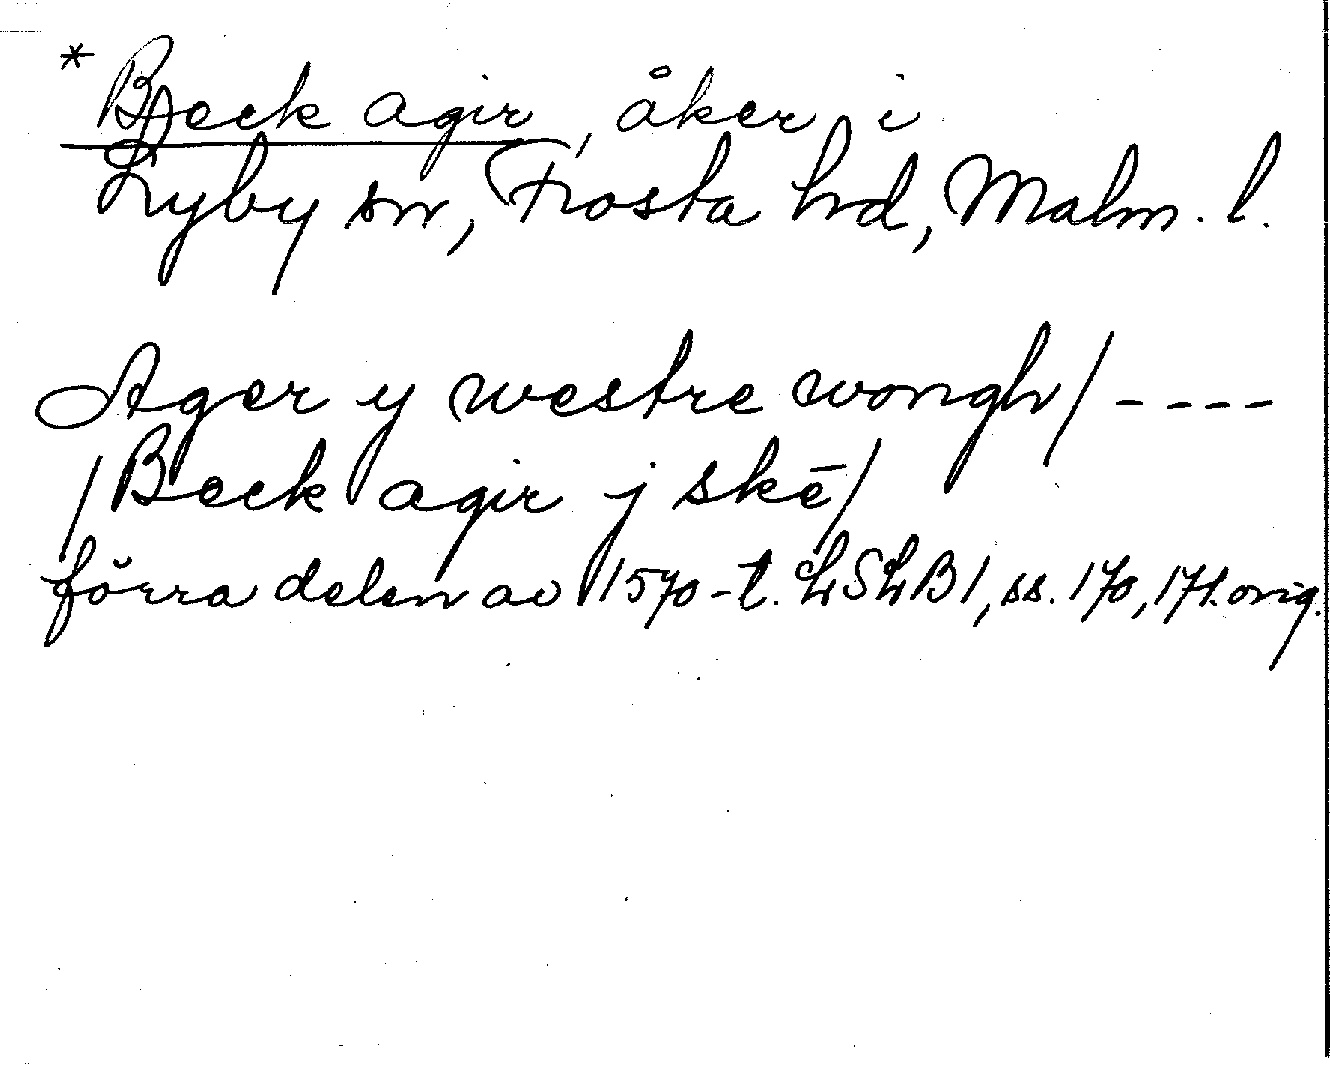 * Beck agir, åker i
Lyby sn, Frosta hd, Malm. l.
Ager y westre wongh/ ----
/Beck agir j skē/
förra delen av 1570-t. LSLB1, ss. 170, 171. orig.